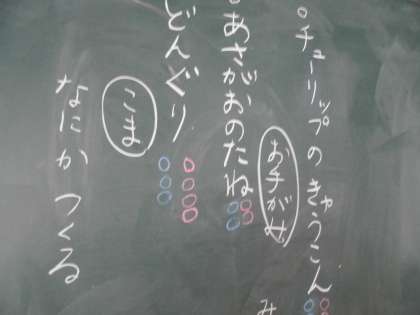 チューリップのきゅうこん
お手がみ
あさがおのたね
どんぐり
こま
なにかつくる
み